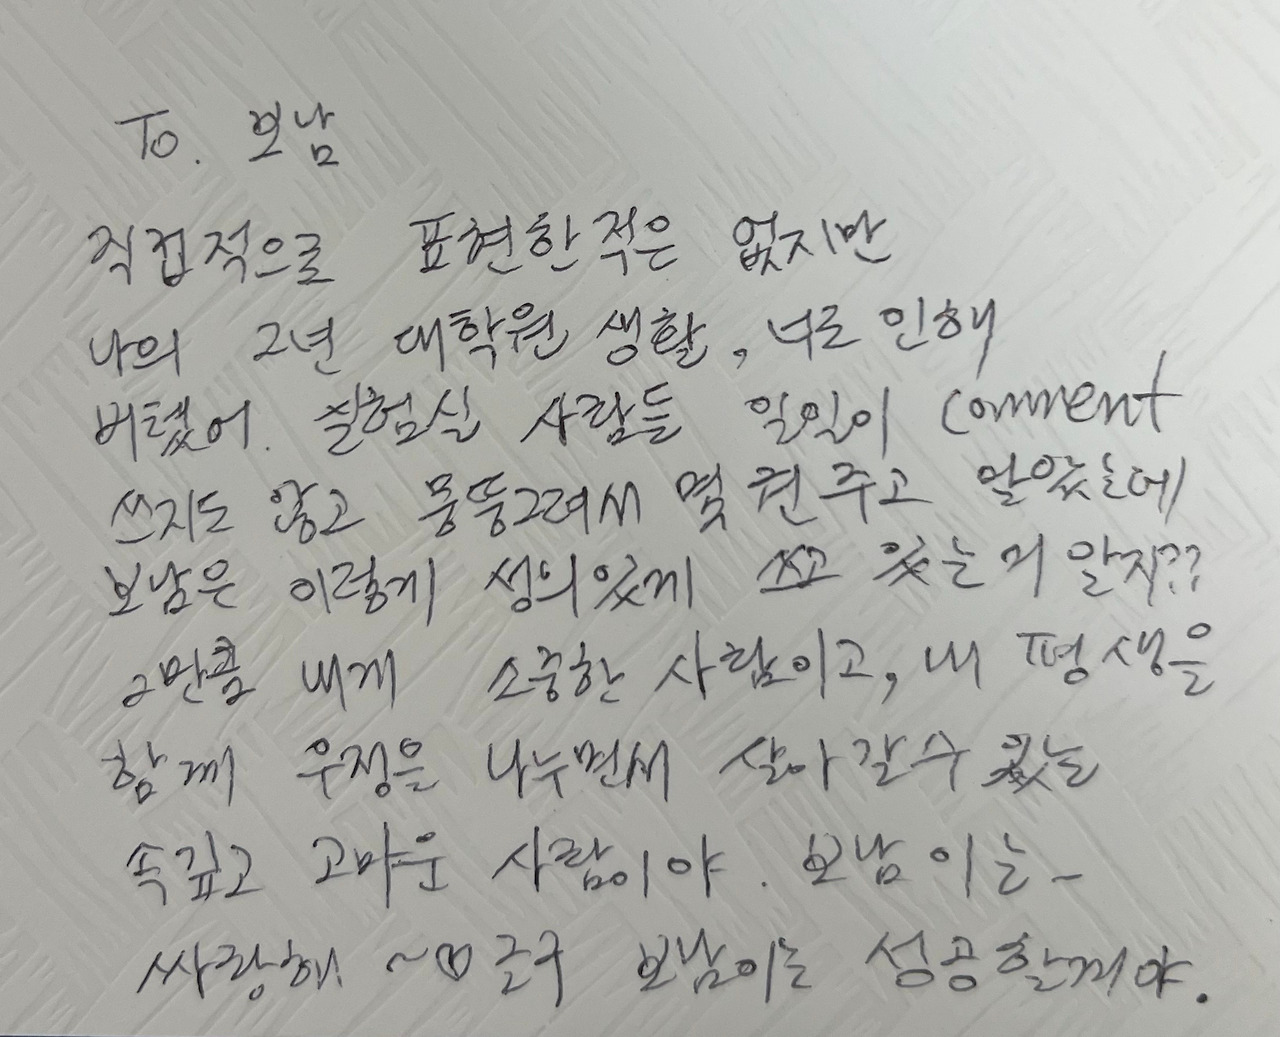 To. 보남
직접적으로 표현한적은 없지만
나의 2년 대학원 생활, 너로 인해
버텼어. 실험실 사람들 일일이 comment
쓰지도 않고 뭉뚱그려서 몇 권 주고 말았는데
보남은 이렇게 성의있게 쓰고 있는거 알지??
그만큼 내게 소중한 사람이고, 내 평생을
함께 우정은 나누면서 살아갈수 있는
속깊고 고마운 사람이야. 보남이는~
싸랑해 ~♡ 글구 보남이는 성공할꺼야.